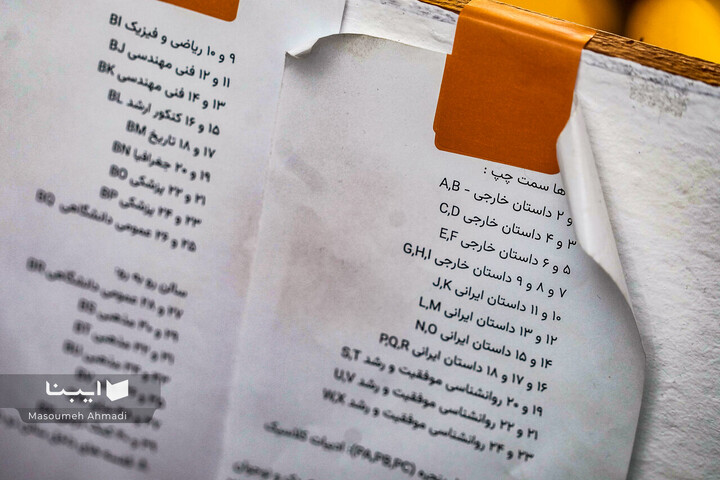 ها سمت چپ :
و ۲ داستان خارجی - A,B
۳ و ۴ داستان خارجی C,D
۵ و ۶ داستان خارجی E,F
۷ و ۸ و ۹ داستان خارجی G,H,I
۱۰ و ۱۱ داستان ایرانی J,K
۱۲ و ۱۳ داستان ایرانی L,M
۱۴ و ۱۵ داستان ایرانی N,O
۱۶ و ۱۷ و ۱۸ داستان ایرانی P,Q,R
۱۹ و ۲۰ روانشناسی موفقیت و رشد S,T
۲۱ و ۲۲ روانشناسی موفقیت و رشد U,V
۲۳ و ۲۴ روانشناسی موفقیت و رشد W,X
پنجره (PA,PB,PC): ادبیات کلاسیک
۹ و ۱۰ ریاضی و فیزیک BI
۱۱ و ۱۲ فنی مهندسی BJ
۱۳ و ۱۴ فنی مهندسی BK
۱۵ و ۱۶ کنکور ارشد BL
۱۷ و ۱۸ تاریخ BM
۱۹ و ۲۰ جغرافیا BN
۲۱ و ۲۲ پزشکی BO
۲۳ و ۲۴ پزشکی BP
۲۵ و ۲۶ عمومی دانشگاهی BQ
سالن رو به رو:
۲۷ و ۲۸ عمومی دانشگاهی BR
۲۹ و ۳۰ مذهبی BS
۳۱ و ۳۲ مذهبی BT
ایبنا
Masoumeh Ahmadi